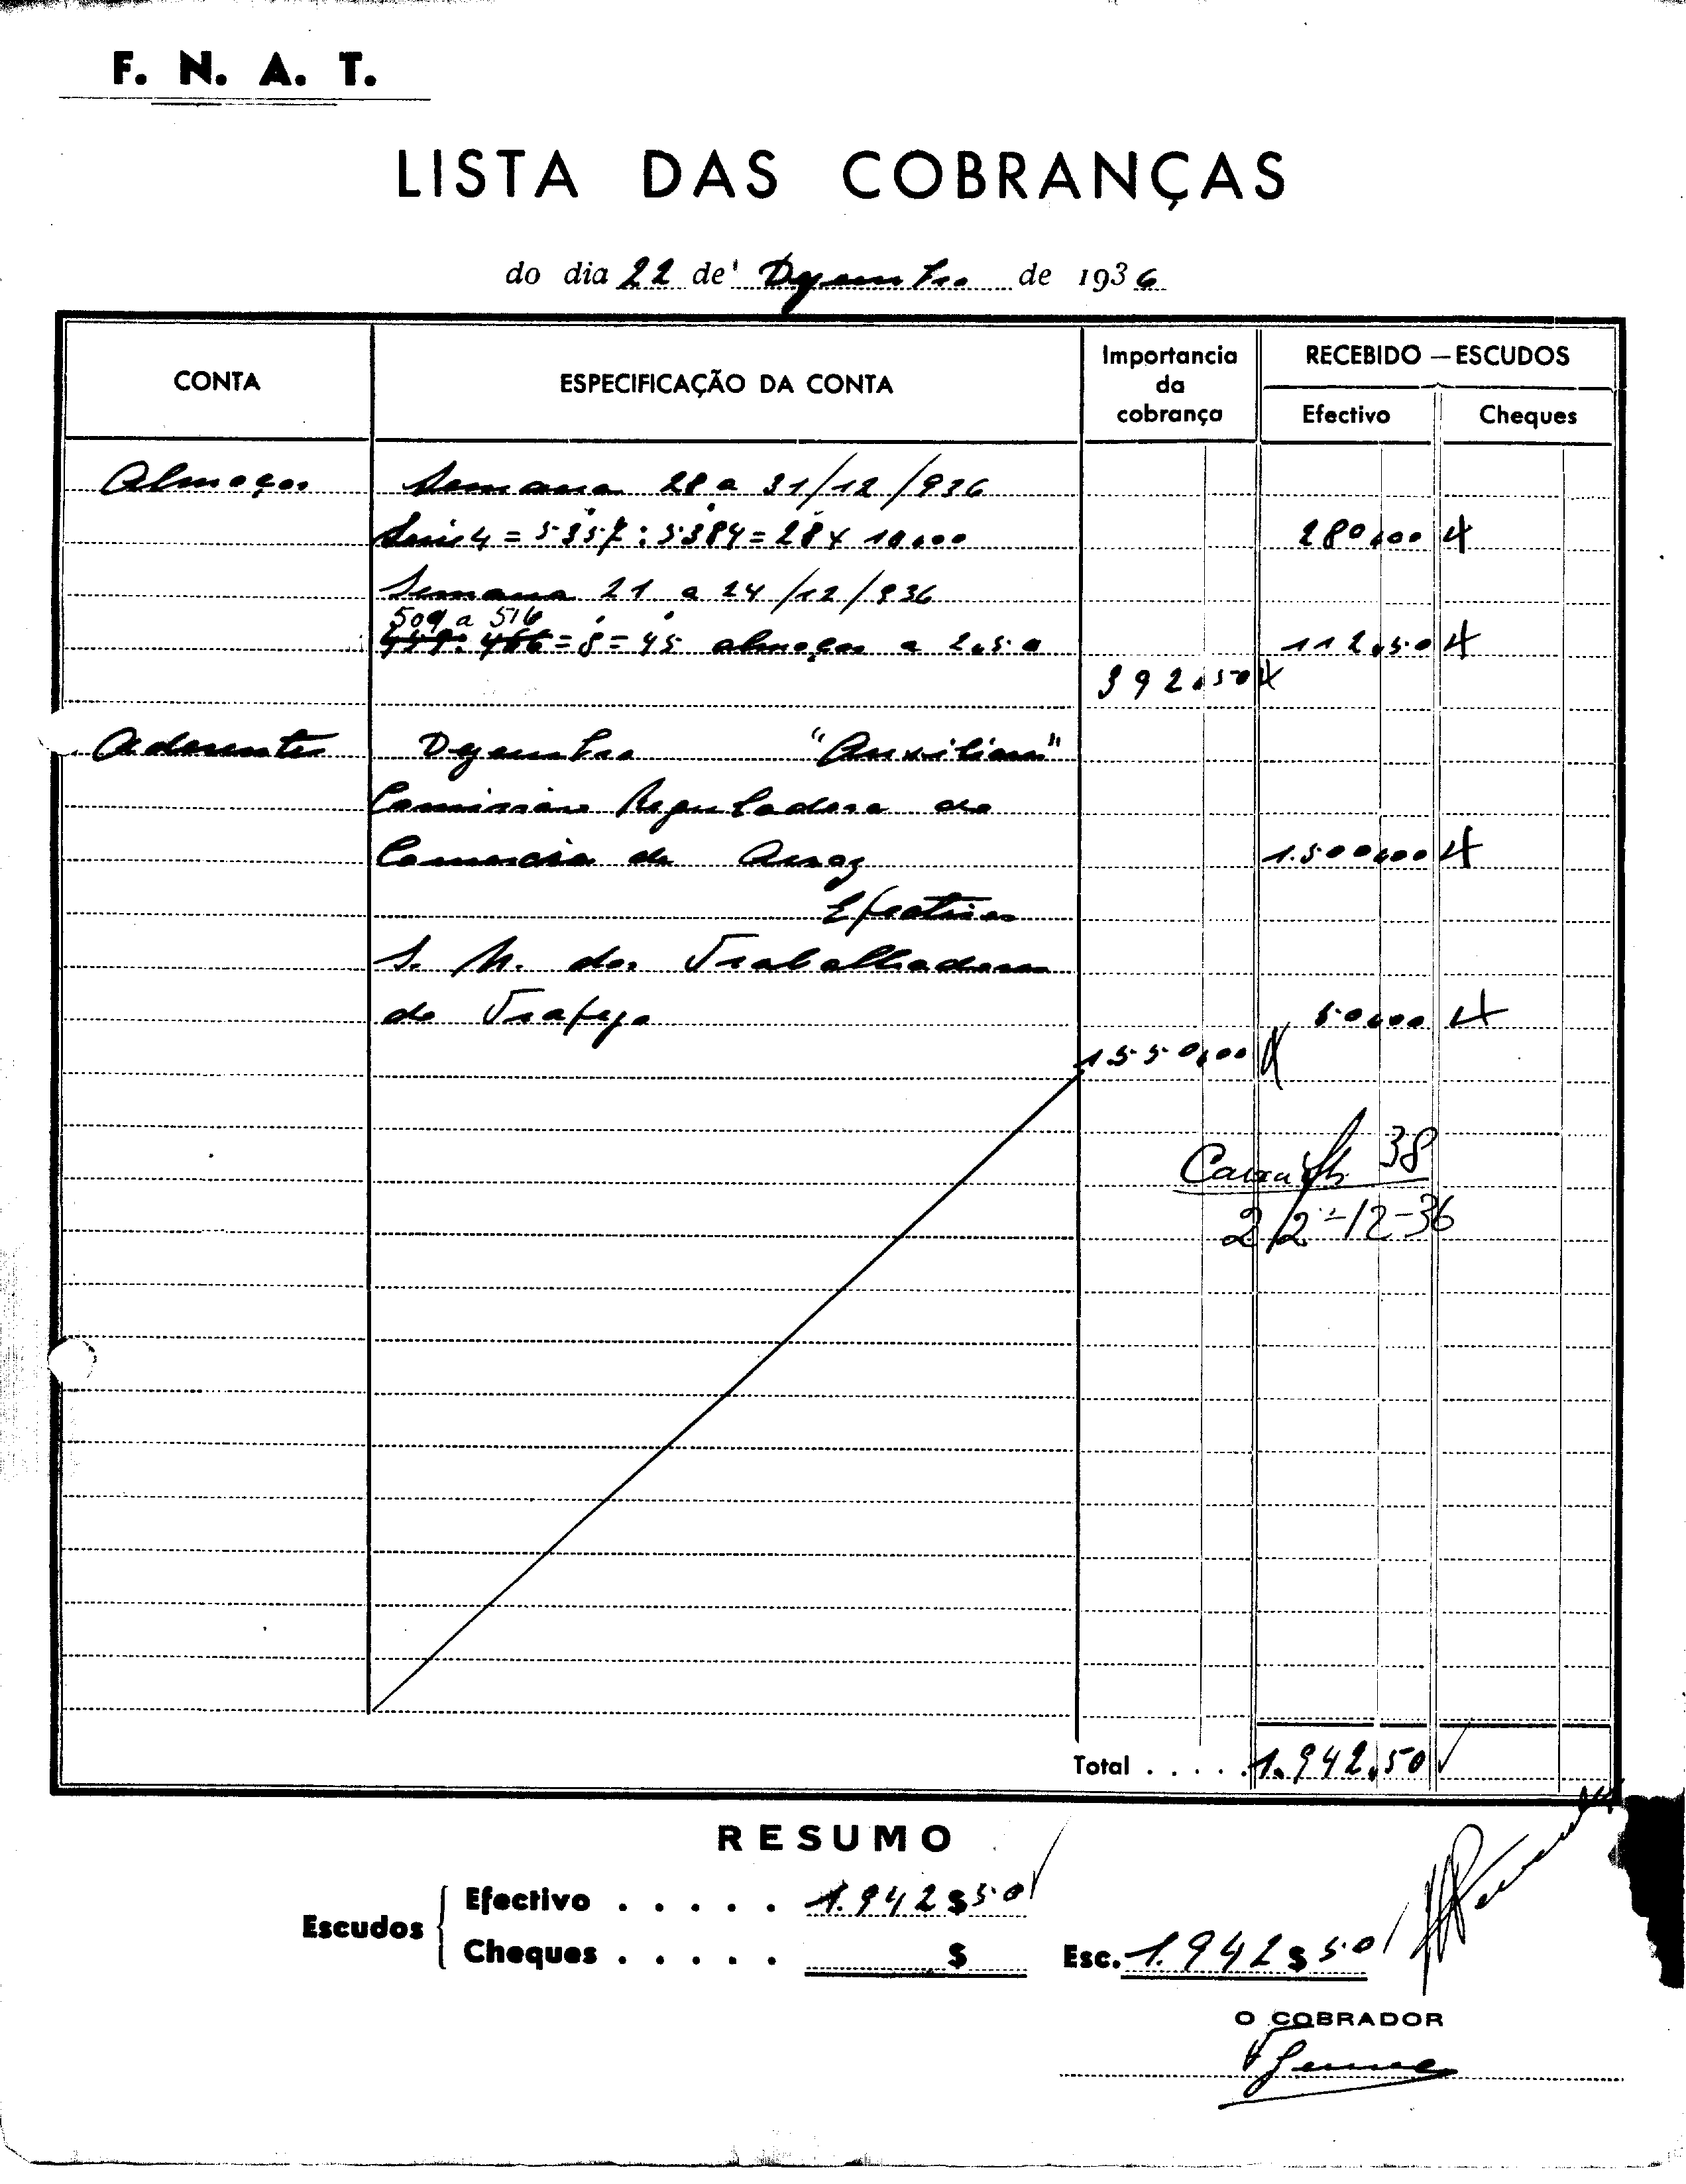 F. N. A. T.
LISTA DAS COBRANÇAS
do dia 22 de Dezembro de 1936
CONTA
ESPECIFICAÇÃO DA CONTA
Importancia da cobrança
RECEBIDO — ESCUDOS
Efectivo
Cheques
Almoços Semana 28 a 31/12/936
Serie 4 = 5.357 : 5.384 = 28 x 10$00 280$00
Semana 21 a 24/12/936
509 a 516
459: 466 = 8 = 45 almoços a 2$50 112$50
392$50
Aderentes Dezembro "Auxiliares"
Comissão Reguladora do
Comercio de Arroz 1.500$00
Efectivos
S. N. dos Trabalhadores
do Trafego 50$00
1550$00
Caixa 38
22-12-36
Total . . . . . 1.942$50
RESUMO
Escudos
Efectivo . . . . . 1.942$50
Cheques . . . . . $
Esc. 1.942$50
O COBRADOR